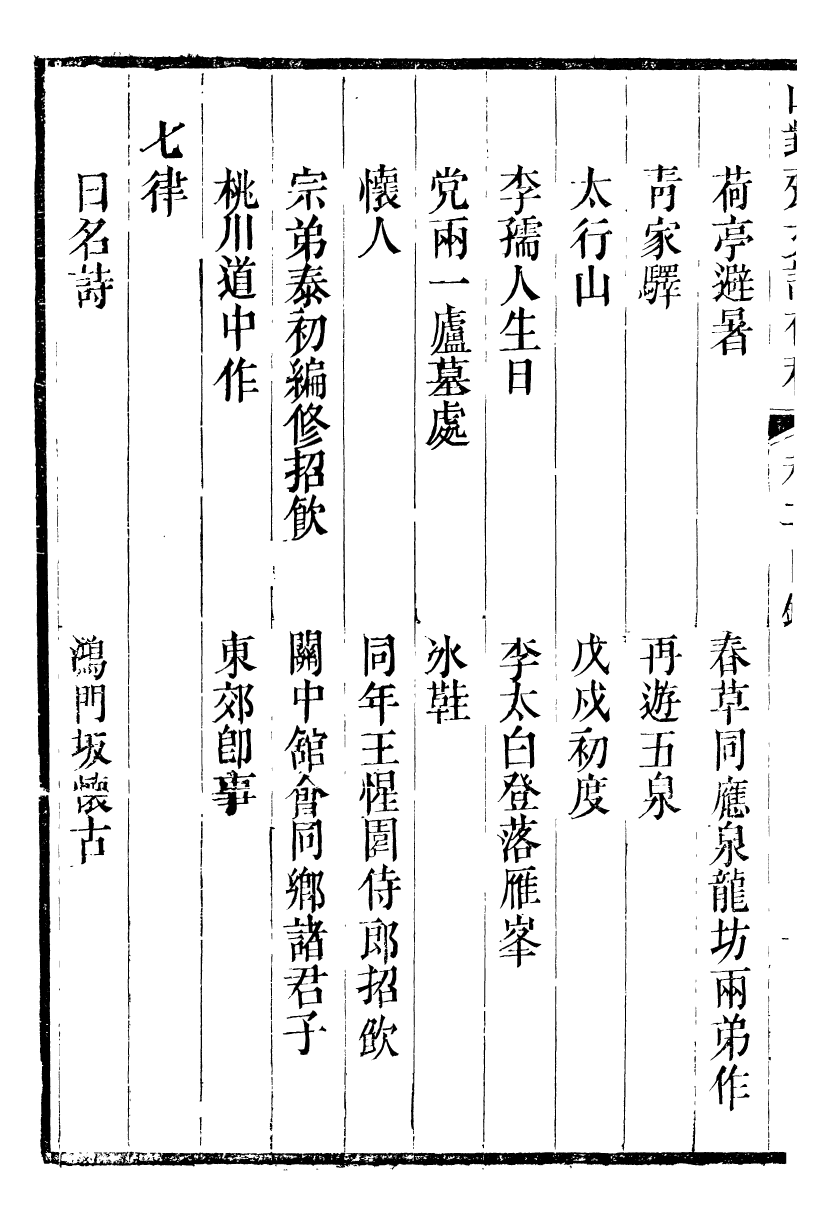 荷亭避暑　春草同應泉龍坊兩弟作
青家驛　再遊五泉
太行山　戊戍初度
李孺人生日　李太白登落雁峯
党兩一廬墓處　氷鞋
懷人　同年王惺園侍郎招飲
宗弟泰初編修招飲　關中舘會同鄉諸君子
桃川道中作　東郊卽事
七律
日名詩　鴻門坂懷古